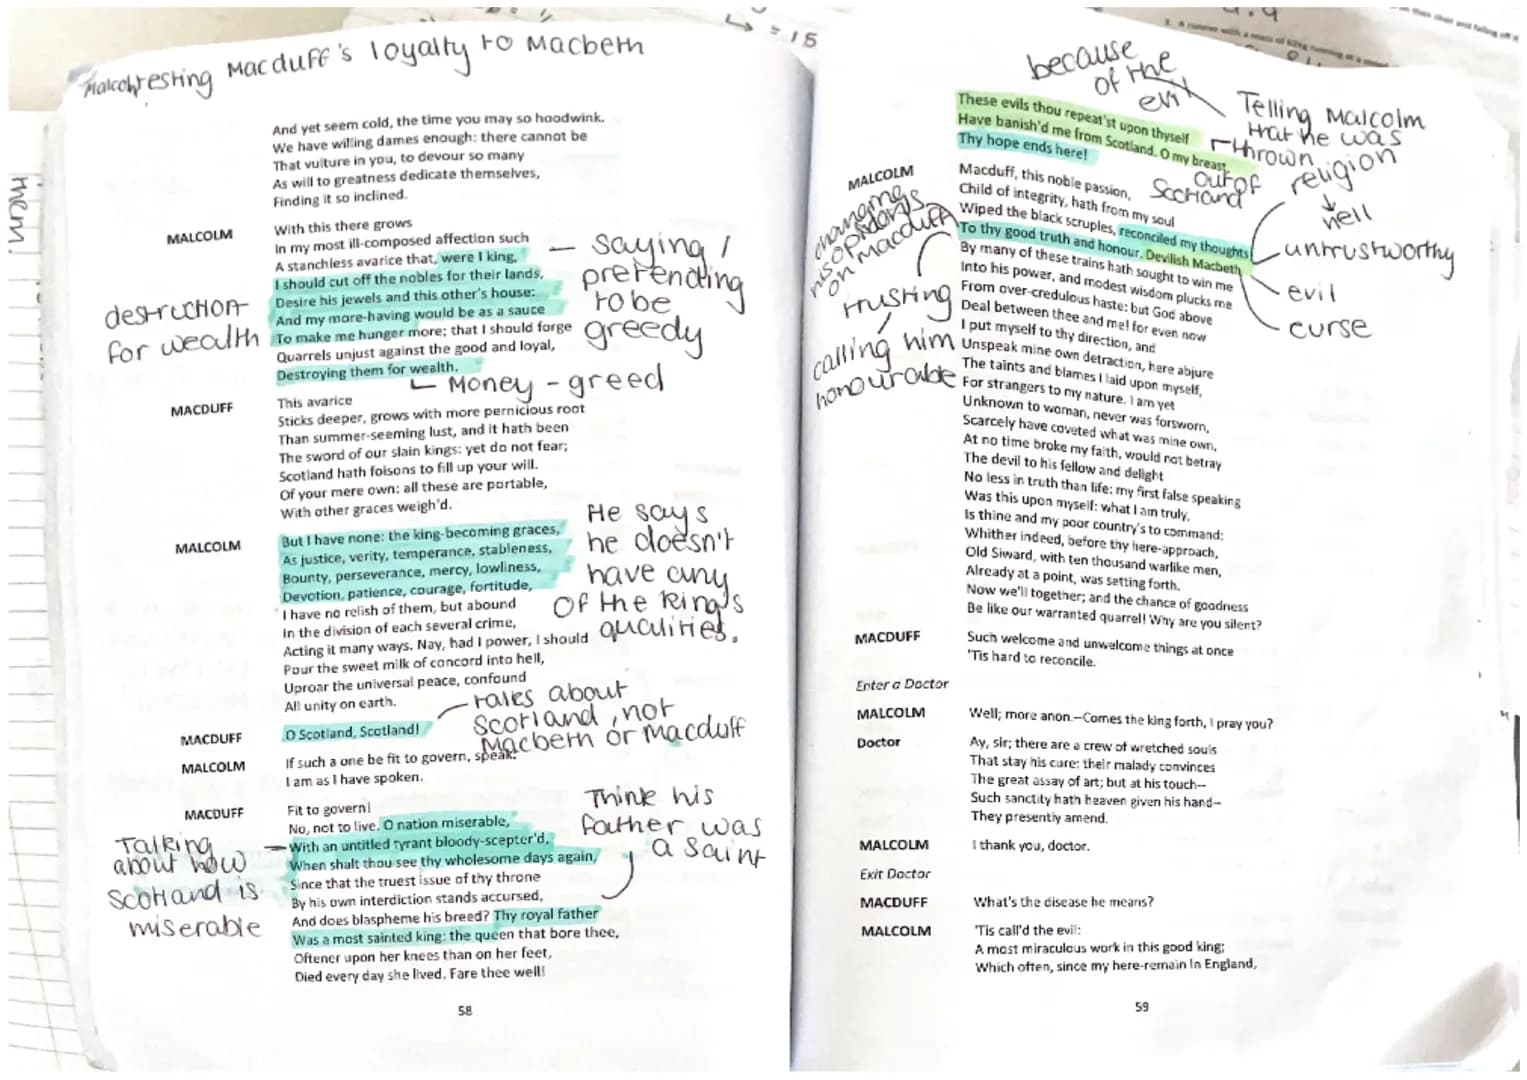 ↳ = 15
Malcolm testing Macduff's loyalty to Macbeth
And yet seem cold, the time you may so hoodwink.
We have willing dames enough: there cannot be
That vulture in you, to devour so many
As will to greatness dedicate themselves,
Finding it so inclined.
MALCOLM With this there grows
In my most ill-composed affection such
A stanchless avarice that, were I king,
I should cut off the nobles for their lands,
Desire his jewels and this other's house:
And my more-having would be as a sauce
To make me hunger more; that I should forge
Quarrels unjust against the good and loyal,
Destroying them for wealth.
— saying /
pretending
to be
greedy
destruction
for wealth
Money - greed
MACDUFF This avarice
Sticks deeper, grows with more pernicious root
Than summer-seeming lust, and it hath been
The sword of our slain kings: yet do not fear;
Scotland hath foisons to fill up your will.
Of your mere own: all these are portable,
With other graces weigh'd.
MALCOLM But I have none: the king-becoming graces,
As justice, verity, temperance, stableness,
Bounty, perseverance, mercy, lowliness,
Devotion, patience, courage, fortitude,
I have no relish of them, but abound
In the division of each several crime,
Acting it many ways. Nay, had I power, I should
Pour the sweet milk of concord into hell,
Uproar the universal peace, confound
All unity on earth.
He says
he doesn't
have any
of the king's
qualities.
MACDUFF O Scotland, Scotland!
talks about
Scotland, not
Macbeth or macduff
MALCOLM If such a one be fit to govern, speak:
I am as I have spoken.
MACDUFF Fit to govern!
No, not to live. O nation miserable,
With an untitled tyrant bloody-scepter'd,
When shalt thou see thy wholesome days again,
Since that the truest issue of thy throne
By his own interdiction stands accursed,
And does blaspheme his breed? Thy royal father
Was a most sainted king: the queen that bore thee,
Oftener upon her knees than on her feet,
Died every day she lived. Fare thee well!
Think his
father was
a saint
Talking
about how
Scotland is
miserable
58
them.
because
of the
evil
These evils thou repeat'st upon thyself
Have banish'd me from Scotland. O my breast,
Thy hope ends here!
Telling Malcolm
that he was
thrown
out of
Scotland
MALCOLM Macduff, this noble passion,
Child of integrity, hath from my soul
Wiped the black scruples, reconciled my thoughts
To thy good truth and honour. Devilish Macbeth
By many of these trains hath sought to win me
Into his power, and modest wisdom plucks me
From over-credulous haste: but God above
Deal between thee and me! for even now
I put myself to thy direction, and
Unspeak mine own detraction, here abjure
The taints and blames I laid upon myself,
For strangers to my nature. I am yet
Unknown to woman, never was forsworn,
Scarcely have coveted what was mine own,
At no time broke my faith, would not betray
The devil to his fellow and delight
No less in truth than life: my first false speaking
Was this upon myself: what I am truly,
Is thine and my poor country's to command:
Whither indeed, before thy here-approach,
Old Siward, with ten thousand warlike men,
Already at a point, was setting forth.
Now we'll together; and the chance of goodness
Be like our warranted quarrel! Why are you silent?
religion
↓
hell
untrustworthy
evil
curse
changing
on macduff
trusting
calling him
honourable
MACDUFF Such welcome and unwelcome things at once
'Tis hard to reconcile.
Enter a Doctor
MALCOLM Well; more anon.—Comes the king forth, I pray you?
Doctor Ay, sir; there are a crew of wretched souls
That stay his cure: their malady convinces
The great assay of art; but at his touch--
Such sanctity hath heaven given his hand--
They presently amend.
MALCOLM I thank you, doctor.
Exit Doctor
MACDUFF What's the disease he means?
MALCOLM 'Tis call'd the evil:
A most miraculous work in this good king;
Which often, since my here-remain in England,
59